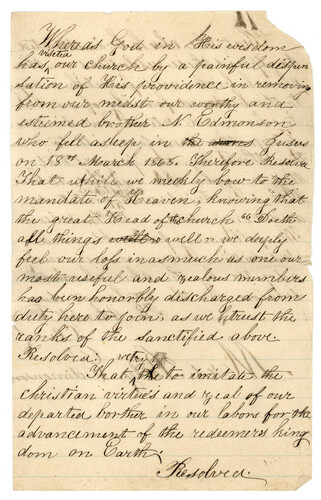 Whereas God in His wisdom
has visited our church by a painful dispen
sation of His providence in removing
from our midst our worthy and
esteemed brother N. Edmonson
who fell asleep in the Jesus
on 18th March 1868. Therefore Resolve
That while we meekly bow to the
mandate of Heaven, knowing that
the great Head of the church "Doeth
all things well" we deeply
feel our loss inasmuch as one our
most useful and zealous members
has been honorbly discharged from
duty here to join, as we trust the
ranks of the sanctified above
Resolved:
That we try to imitate the
christian virtue's and zeal of our
departed borther in our labors for the
advancement of the redeemers king
dom on Earth.
Resolved.